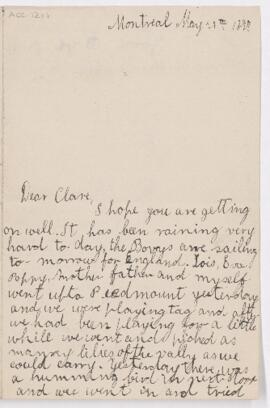 ACC 1211
Montreal May 21th 1899
Dear Clare,
I hope you are getting
on well. It has been raining very
hard to day, the Bovys are sailing
to morrow for England. Lois, Eve
Poppy, Mother father and myself
went upto Piedmount yesterday
and we were playing tag and after
we had been playing for a little
while we went and picked as
manny lilies of the vally as we
could carry. Yesterday there was
a humming bird in next door
and we went in and tried